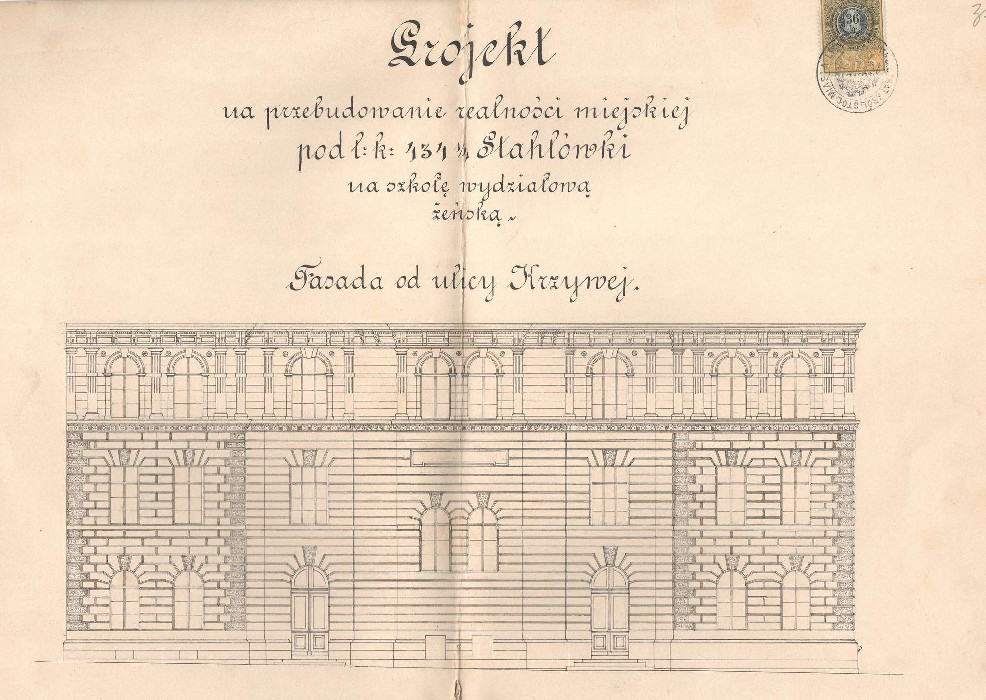 Projekt
na przebudowanie realności miejskiej
pod l: k: 434 ¼ Stahlówki
na szkołę wydziałową
żeńską.
Fasada od ulicy Krzywej.
36